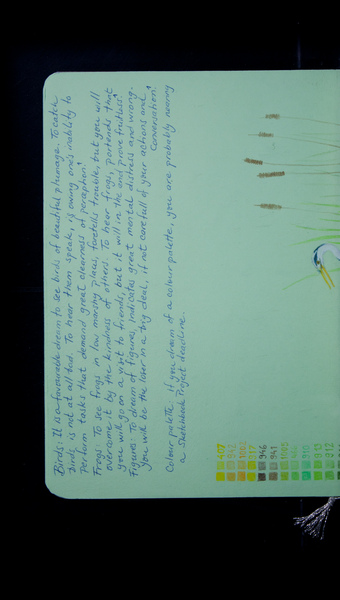 Birds: It is a favourable dream to see birds of beautiful plumage. To catch
birds, is not at all bad. To hear them speak, is owning one's inability to
perform tasks that demand great clearness of perception.
Frogs: To see frogs in low marshy places, foretells trouble, but you will
overcome it by the kindness of others. To hear frogs, portends that
you will go on a visit to friends, but it will in the end prove fruitless.
Figures: To dream of figures, indicates great mental distress and wrong.
You will be the loser in a big deal, if not carefull of your actions and
conversation.
Colour palette: if you dream of a colour palette, you are probably nearing
a Sketchbook Project deadline.
946
941
910
913
912